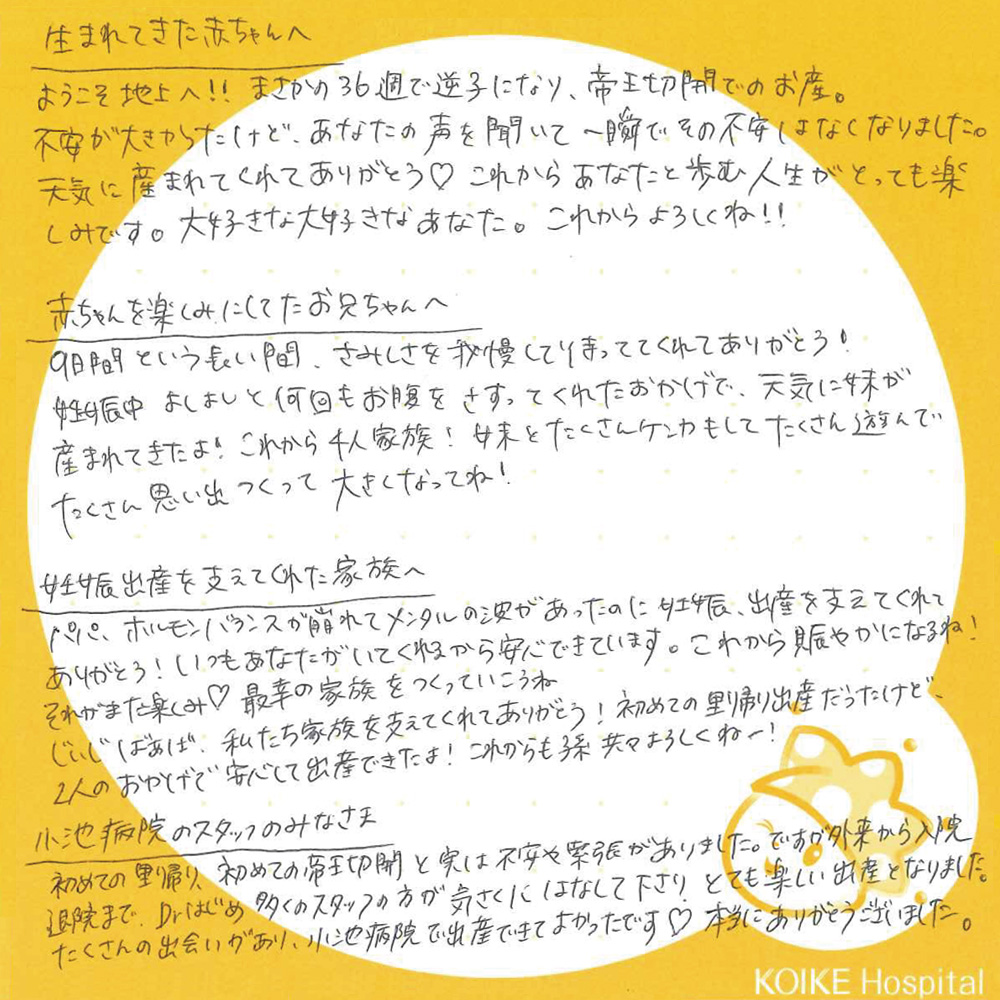 生まれてきた赤ちゃんへ
ようこそ地上へ!! まさかの36週で逆子になり、帝王切開でのお産。
不安が大きかったけど、あなたの声を聞いて一瞬でその不安はなくなりました。
元気に産まれてくれてありがとう♡ これからあなたと歩む人生がとっても楽
しみです。大好きな大好きなあなた。これからよろしくね!!
赤ちゃんを楽しみにしてたお兄ちゃんへ
9日間という長い間、さみしさを我慢してまっててくれてありがとう!
妊娠中 よしよしと何回もお腹をさすってくれたおかげで、元気に妹が
産まれてきたよ! これから4人家族! 妹とたくさんケンカもしてたくさん遊んで
たくさん思い出つくって大きくなってね!
妊娠出産を支えてくれた家族へ
パパ、ホルモンバランスが崩れてメンタルの波があったのに妊娠、出産を支えてくれて
ありがとう! いつもあなたがいてくれるから安心できています。これから賑やかになるね!
それがまた楽しみ♡ 最幸の家族をつくっていこうね
じぃじばぁば、私たち家族を支えてくれてありがとう! 初めての里帰り出産だったけど、
2人のおかげで安心して出産できたよ! これからも孫共々よろしくねー!
小池病院のスタッフのみなさま
初めての里帰り、初めての帝王切開と実は不安や緊張がありました。ですが外来から入院
退院まで、Drはじめ多くのスタッフの方が気さくにはなして下さり とても楽しい出産となりました。
たくさんの出会いがあり、小池病院で出産できてよかったです♡ 本当にありがとうございました。
KOIKE Hospital